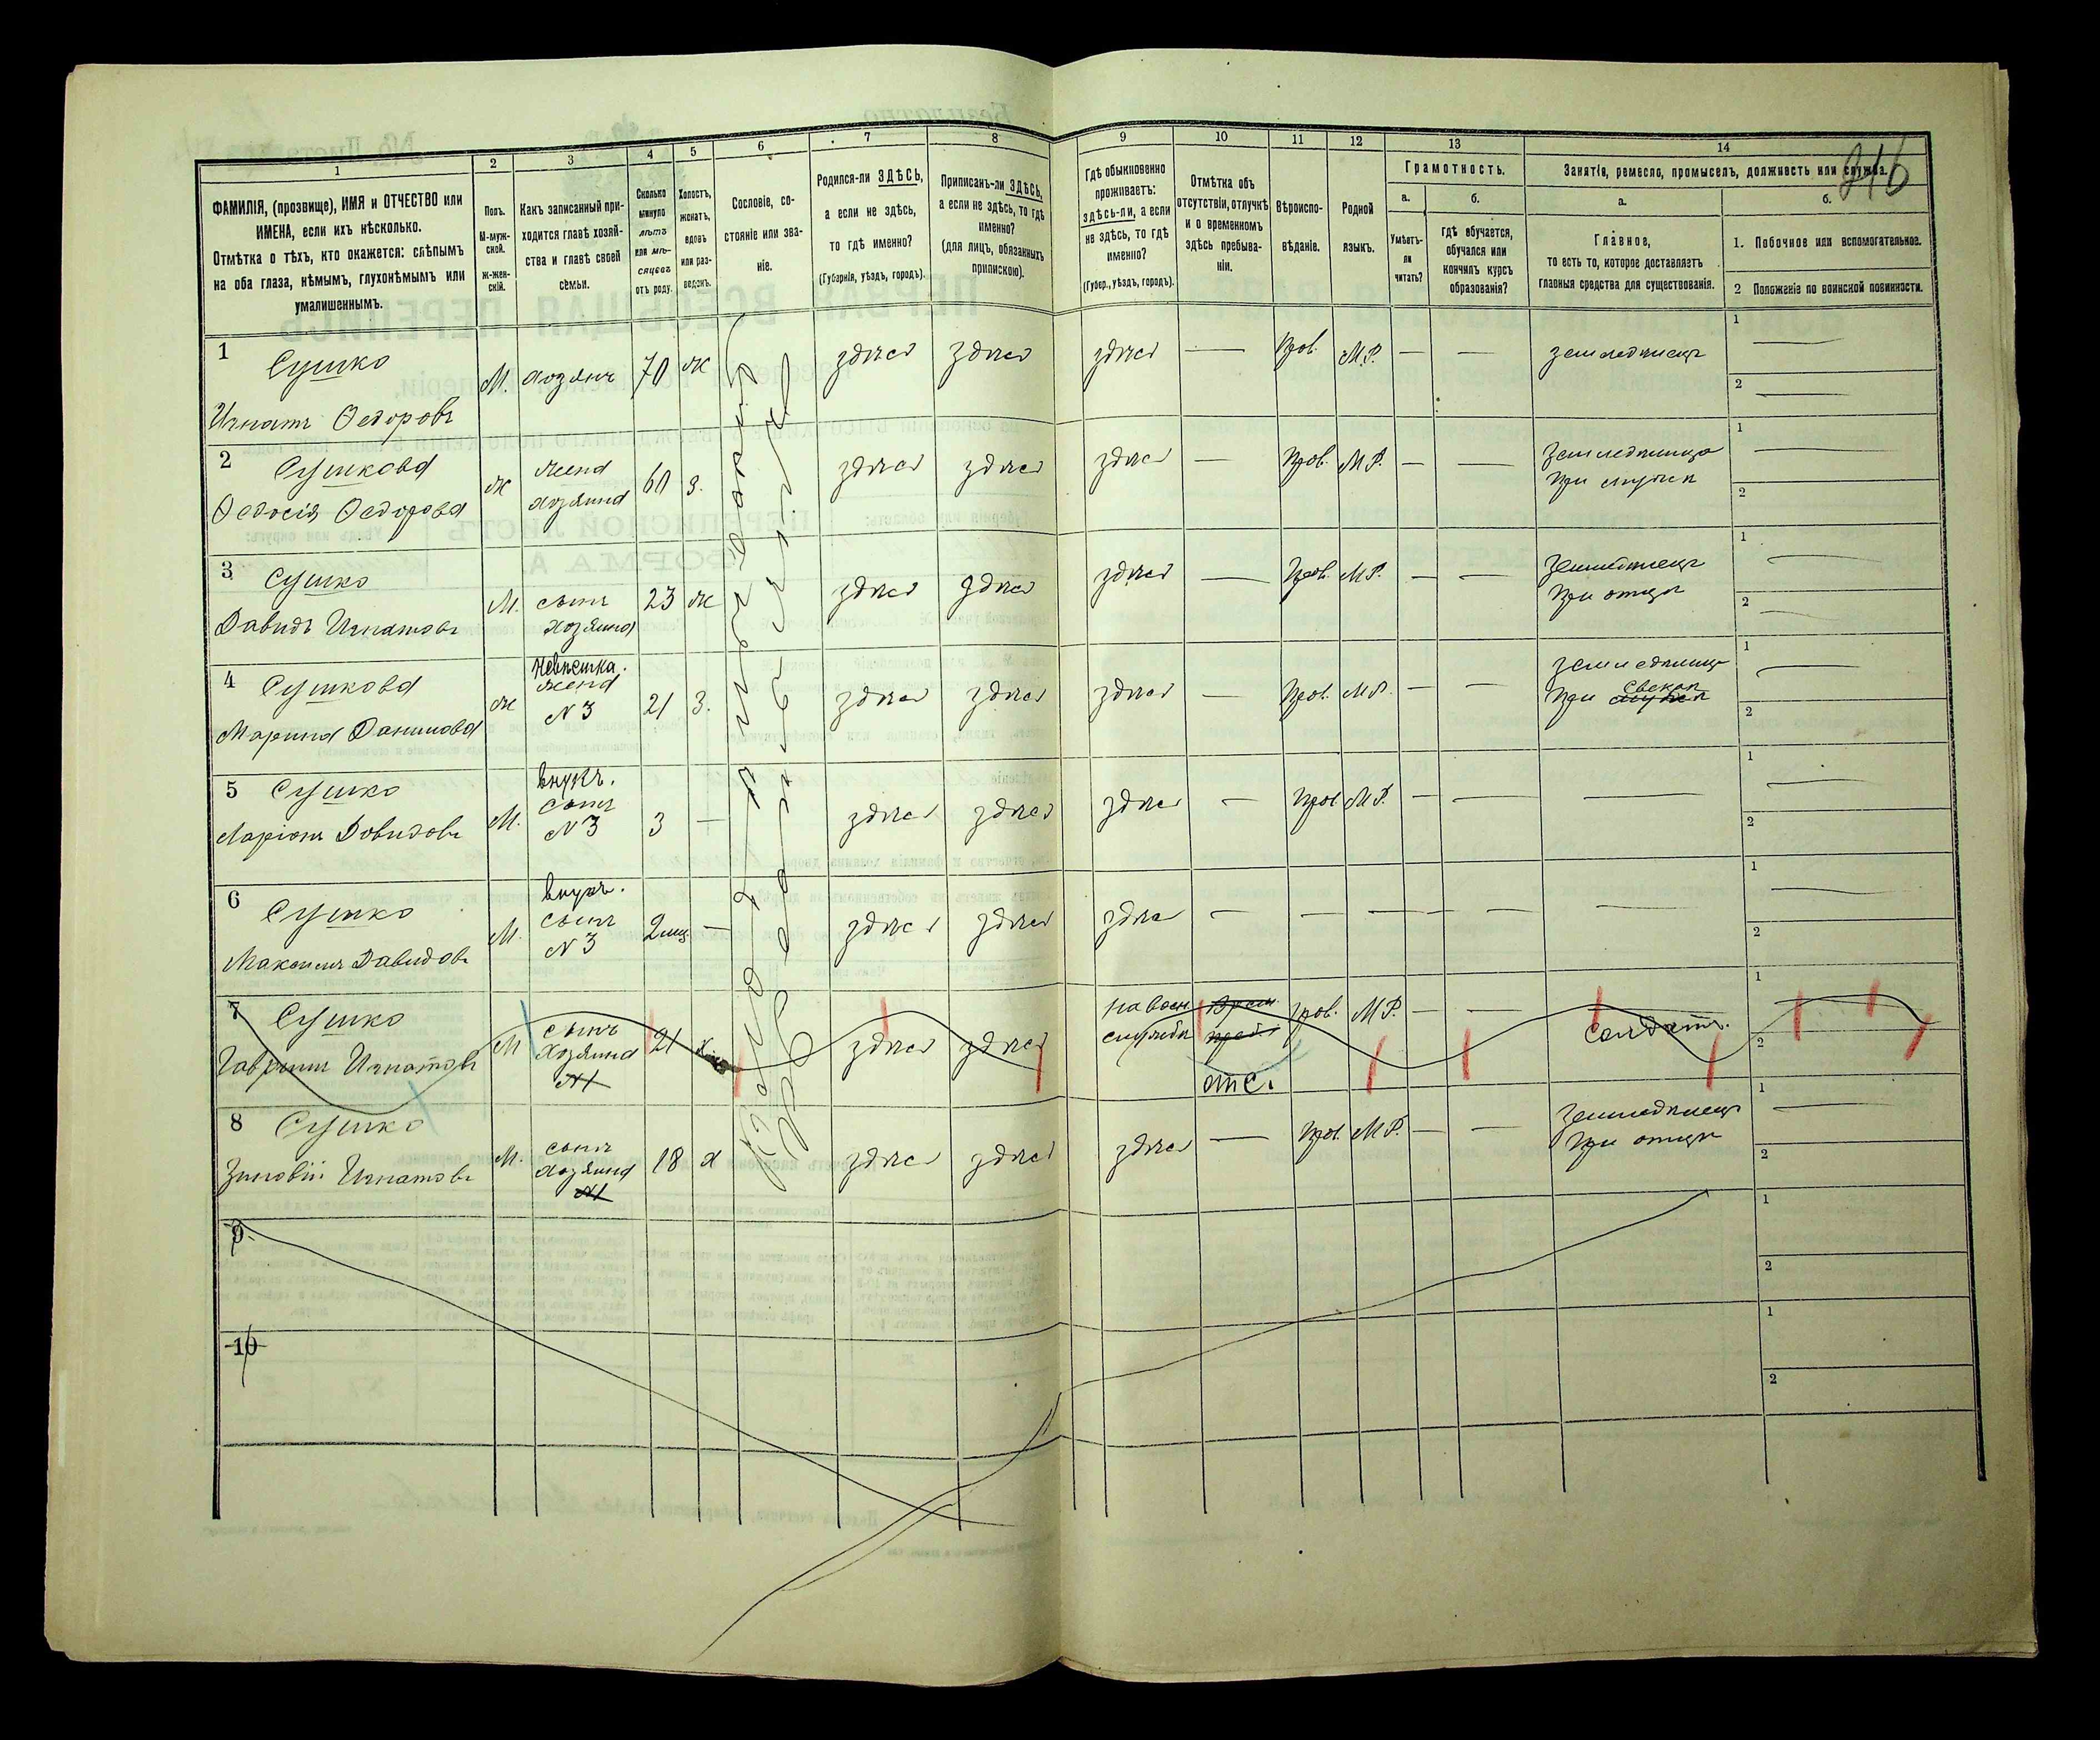 216
1
2
3
4
5
6
7
8
9
10
11
12
13
14
ФАМИЛІЯ, (прозвище), ИМЯ и ОТЧЕСТВО или
ИМЕНА, если ихъ нѣсколько.
Отмѣтка о тѣхъ, кто окажется: слѣпымъ
на оба глаза, нѣмымъ, глухонѣмымъ или
умалишеннымъ.
Полъ.
М-муж-
ской.
Ж-жен-
скій.
Какъ записанный при-
ходится главѣ хозяй-
ства и главѣ своей
семьи.
Сколько
минуло
лѣтъ
или мѣ-
сяцевъ
отъ роду.
Холостъ,
женатъ,
вдовъ
или раз-
веденъ.
Сословіе, со-
стояніе или зва-
ніе.
Родился-ли ЗДѢСЬ,
а если не здѣсь,
то гдѣ именно?
(Губернія, уѣздъ, городъ).
Приписанъ-ли ЗДѢСЬ,
а если не здѣсь, то гдѣ
именно?
(для лицъ, обязанныхъ
припискою).
Гдѣ обыкновенно
проживаетъ:
здѣсь-ли, а если
не здѣсь, то гдѣ
именно?
(Губер., уѣздъ, городъ).
Отмѣтка объ
отсутствіи, отлучкѣ
и о временномъ
здѣсь пребыва-
ніи.
Вѣроиспо-
вѣданіе.
Родной
языкъ.
Грамотность.
а.
Умѣетъ-
ли
читать?
б.
гдѣ обучается,
обучался или
кончилъ курсъ
образованія?
Занятіе, ремесло, промыселъ, должность или служба.
а.
Главное,
то есть то, которое доставляетъ
главныя средства для существованія.
б.
1. Побочное или вспомогательное.
2 Положеніе по воинской повинности.
1 Сушко
Игнатъ Ѳедоровъ
М. хозяинъ 70 ж здѣсь здѣсь здѣсь — Прав. М.Р. — — земледѣлецъ 1 — 2 —
2 Сушкова
Ѳедосія Ѳедорова
ж жена
хозяина
60 з. здѣсь здѣсь здѣсь — Прав. М.Р. — —
земледѣлица
при мужѣ
1 — 2
3 Сушко
Давидъ Игнатовъ
М. сынъ
хозяина
23 ж здѣсь здѣсь здѣсь — Прав. М.Р. — —
земледѣлецъ
при отцѣ
1 — 2 —
4 Сушкова
Марина Данилова
ж Невѣстка.
жена
N 3
21 з. здѣсь здѣсь здѣсь — Прав. М.Р. — —
земледѣлица
при свекрѣ мужѣ
1 — 2 —
5 Сушко
Ларіонъ Довидовъ
М. внукъ.
сынъ
N 3
3 — здѣсь здѣсь здѣсь — Прав М.Р. — — — 1 — 2 —
6 Сушко
Максимъ Давидовъ
М. внукъ.
сынъ
N 3
2 мц — здѣсь здѣсь здѣсь — — — — — — 1 — 2 —
7 Сушко
Гавріилъ Игнатовъ
М сынъ
хозяина
N1
21 х здѣсь здѣсь
на воен.
службѣ
отс.
Прав. М.Р. — — солдатъ. 1 2
8 Сушко
Зиновій Игнатовъ
М. сынъ
хозяина
N1
18 х здѣсь здѣсь здѣсь — Прав. М.Р. — —
земледѣлецъ
при отцѣ
1 — 2
9
1
2
10
1
2